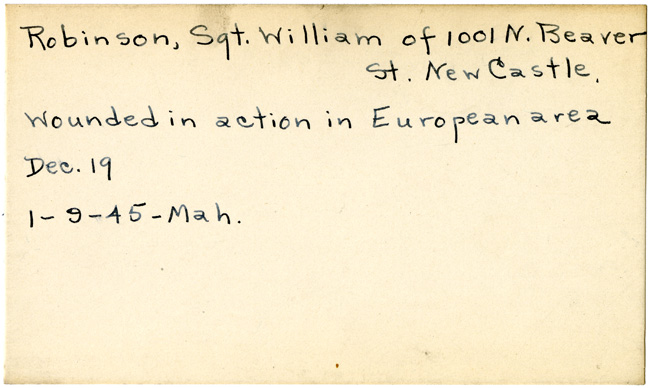 Robinson, Sgt. William of 1001 N. Beaver
St. New Castle.
Wounded in action in European area
Dec. 19
1-9-45-Mah.